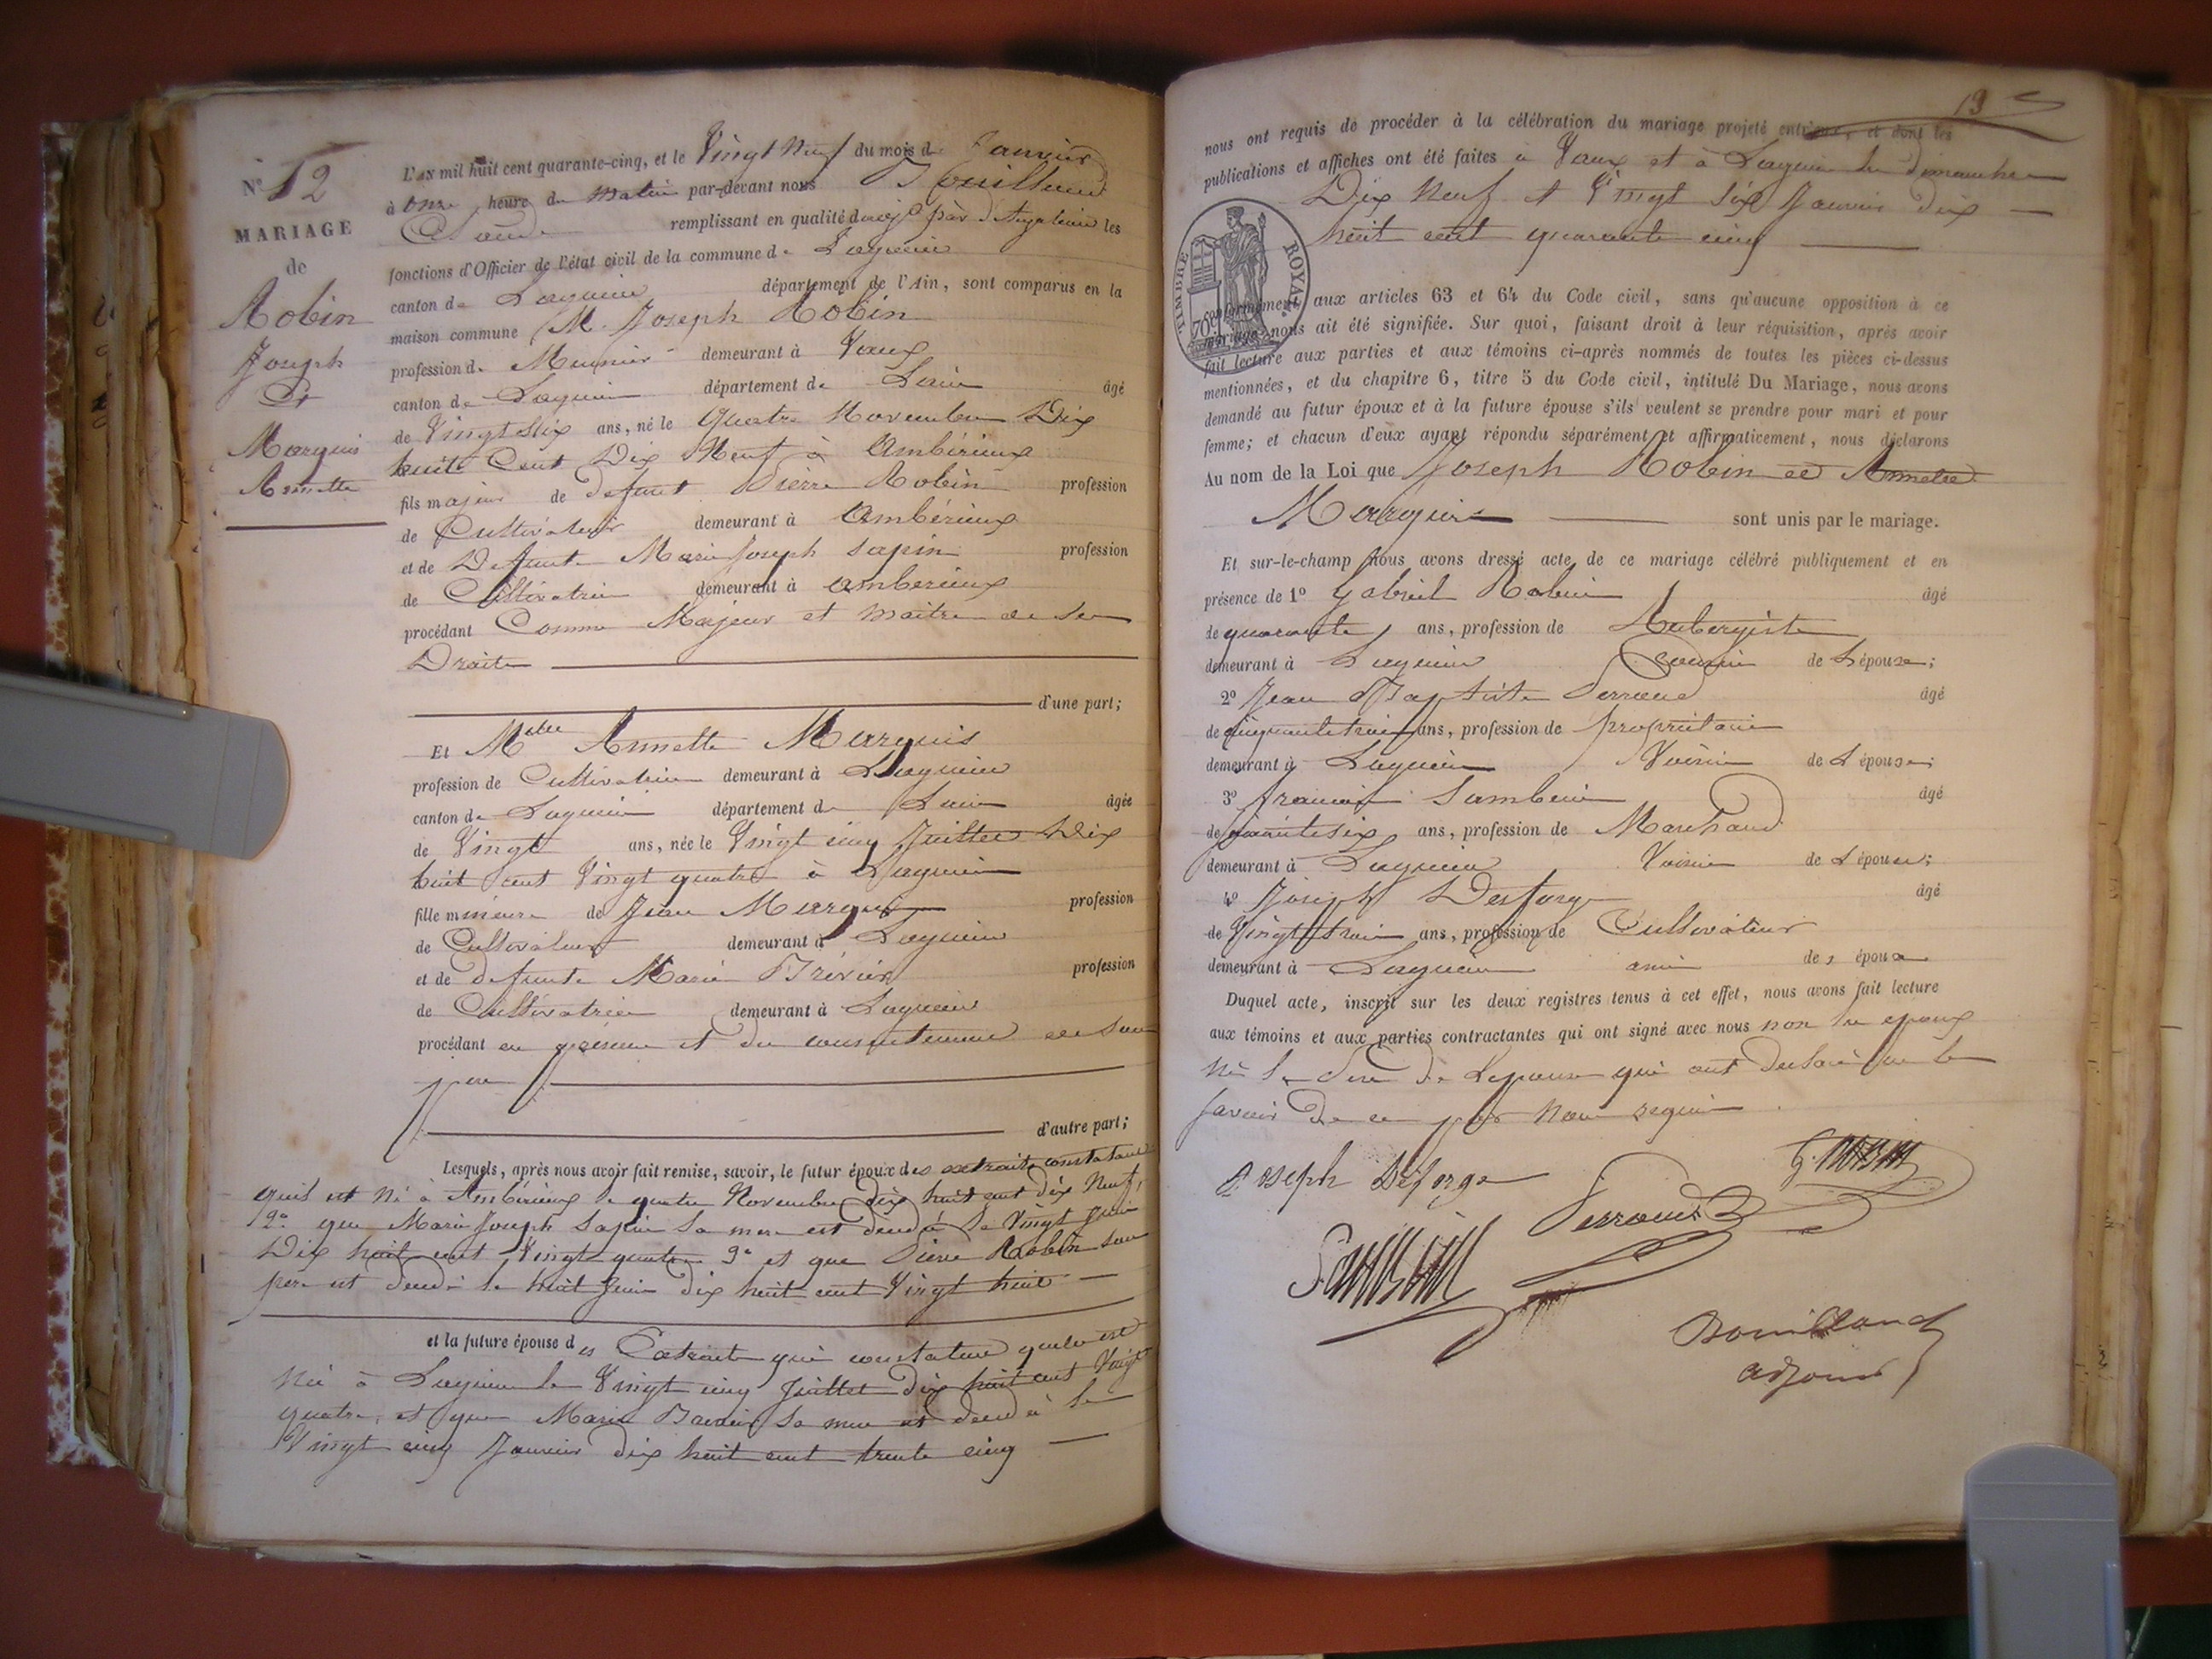 N° 12
MARIAGE
de
Robin
Joseph
Et
Marquis
Annette
L'AN mil huit cent quarante-cinq, et le Vingt Neuf du mois de Janvier
à onze heure du matin par-devant nous Bouilland
Claude remplissant en qualité d'adj. par les
fonctions d'Officier de l'état civil de la commune de Lagnieu
canton de Lagnieu département de l'Ain, sont comparus en la
maison commune M. Joseph Robin
profession de Meunier demeurant à Vaux
canton de Lagnieu département de Lain âgé
de Vingt Six ans, né le quatre Novembre Dix
huit Cent Dix Neuf à Ambérieux
fils majeur de defunt Pierre Robin profession
de Cultivateur demeurant à Ambérieux
et de Defunte Marie Joseph Sapin profession
de Cultivatrice demeurant à Ambérieux
procédant Comme Majeur et maître de Ses
Droits
d'une part;
Et Mlle Annette Marquis
profession de Cultivatrice demeurant à Lagnieu
canton de Lagnieu département de Lain âgée
de Vingt ans, née le Vingt cinq Juillet Dix
huit cent Vingt quatre à Lagnieu
fille mineure de Jean Marquis profession
de Cultivateur demeurant à Lagnieu
et de defunte Marie profession
de Cultivatrice demeurant à Lagnieu
procédant en présence et du consentement de Son
pere
d'autre part;
Lesquels, après nous avoir fait remise, savoir, le futur époux des extraits constatant
quil est Né à Ambérieux le quatre Novembre dix huit cent dix Neuf,
2° que Marie Joseph Sapin Sa mere est décédé le Vingt Juin
Dix huit cent Vingt quatre 3° et que Pierre Robin Son
pere est décédé le huit Juin dix huit cent Vingt huit
et la future épouse des Extraits qui constatent quelle est
Née à Lagnieu le Vingt cinq Juillet dix huit cent Vingt
quatre, et que Marie Sa mere est décédé le
Vingt cinq Janvier dix huit cent trente cinq
13
nous ont requis de procéder à la célébration du mariage projeté entr'eux, et dont les
publications et affiches ont été faites à Vaux et à Lagnieu les dimanches
Dix Neuf et Vingt Six Janvier dix
huit cent quarante cinq
TIMBRE ROYAL
70c
conformément aux articles 63 et 64 du Code civil, sans qu'aucune opposition à ce
mariage nous ait été signifiée. Sur quoi, faisant droit à leur réquisition, après avoir
fait lecture aux parties et aux témoins ci-après nommés de toutes les pièces ci-dessus
mentionnées, et du chapitre 6, titre 5 du Code civil, intitulé Du Mariage, nous avons
demandé au futur époux et à la future épouse s'ils veulent se prendre pour mari et pour
femme; et chacun d'eux ayant répondu séparément et affirmativement, nous déclarons
Au nom de la Loi que Joseph Robin et Annette
Marquis sont unis par le mariage.
Et sur-le-champ nous avons dressé acte de ce mariage célébré publiquement et en
présence de 1° Gabriel Robin âgé
de quarante ans, profession de Aubergiste
demeurant à Lagnieu Cousin de Lépouse;
2° Jean Baptiste Perroud âgé
de cinquante trois ans, profession de propriétaire
demeurant à Lagnieu Voisin de Lépouse;
3° francois Sambuin âgé
ans, profession de Marchand
demeurant à Lagnieu Voisin de Lépouse;
4° Joseph Desforge âgé
de Vingt trois ans, profession de Cultivateur
demeurant à Lagnieu ami des époux
Duquel acte, inscrit sur les deux registres tenus à cet effet, nous avons fait lecture
aux témoins et aux parties contractantes qui ont signé avec nous non les epoux
Ni Le Pere de Lepouse qui ont déclaré ne le
Savoir De ce par Nous requis.
Joseph Deforge
G. Robin
Perroud
Bouilland
adjoint